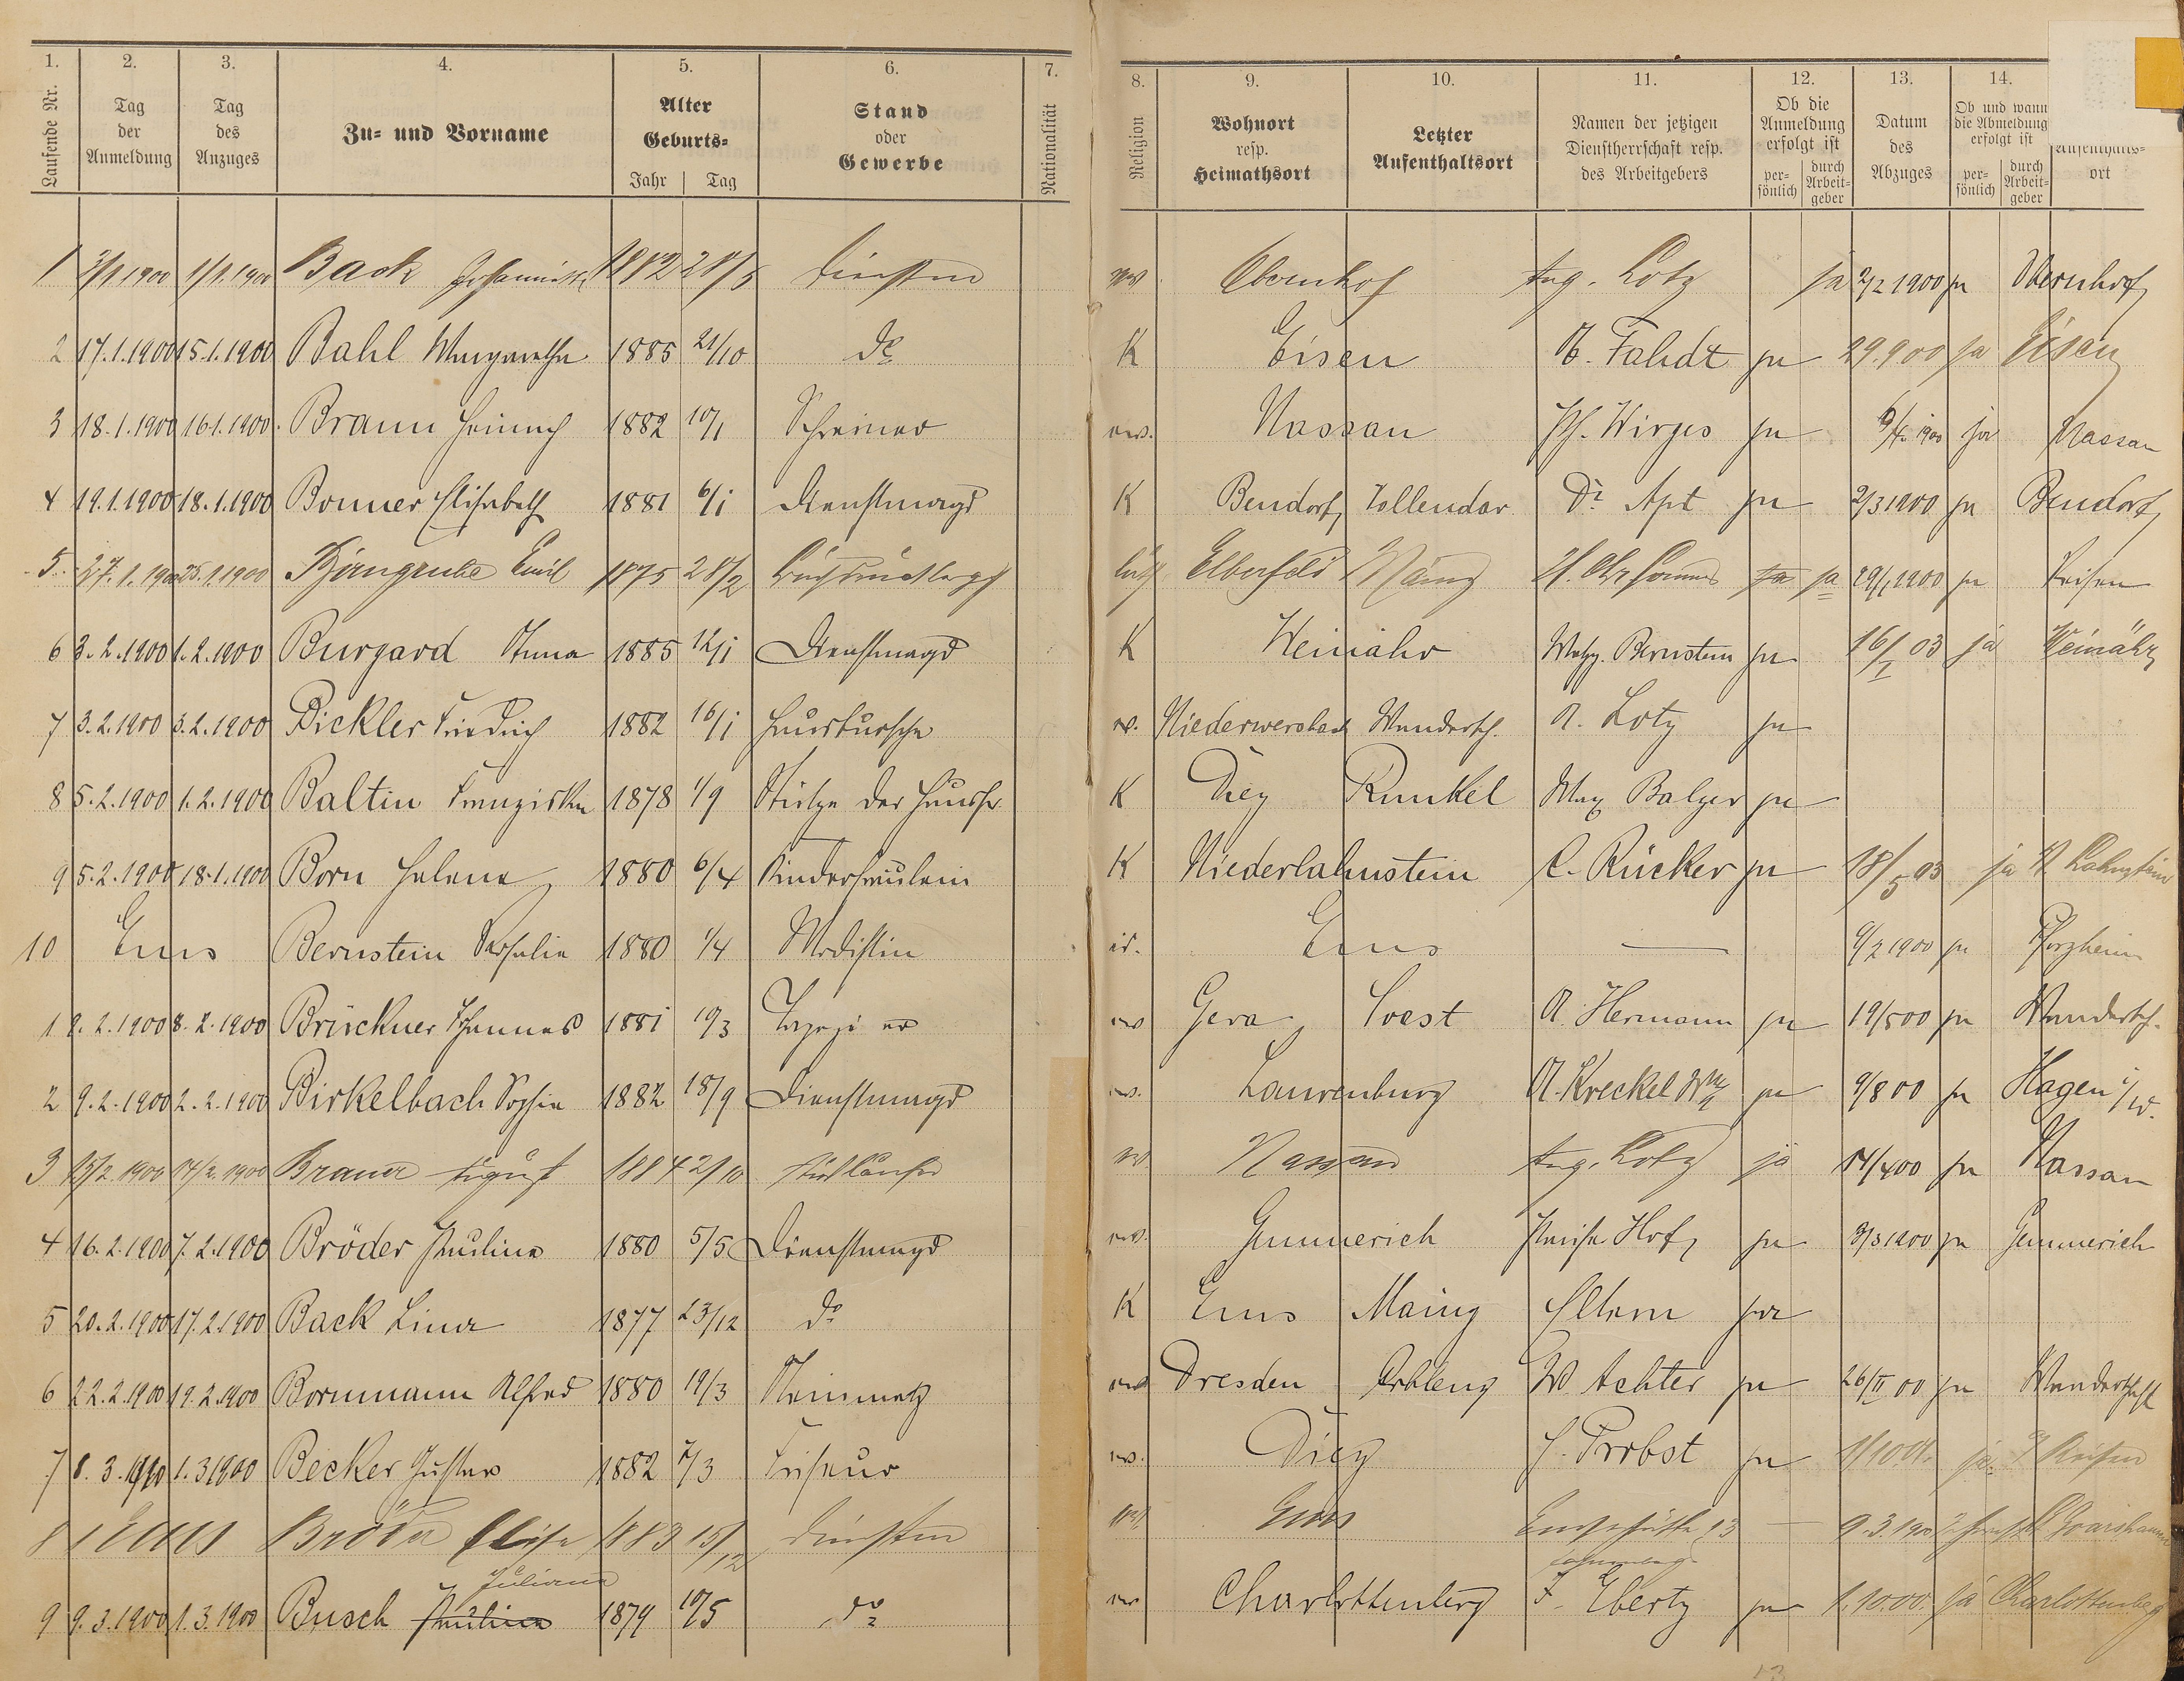 1. 2. 3. 4. 5. 6. 7. 8. 9. 10. 11. 12. 13. 14.
Laufende Nr. Tag der Anmeldung Tag des Anzuges Zu- und Vorname Alter Geburts- Jahr Tag Stand oder Gewerbe Nationalität Religion Wohnort resp. Heimathsort Letzter Aufenthaltsort Namen der jetzigen Dienstherrschaft resp. des Arbeitgebers Ob die Anmeldung erfolgt ist persönlich durch Arbeitgeber Datum des Abzuges Ob und wann die Abmeldung erfolgt ist persönlich durch Arbeitgeber Aufenthalts-ort
1 1900 1/1.1900 Back 1882 28/5 Obernhof Aug. Lotz ja 2/2 1900 ja Obernhof
2 17.1.1900 15.1.1900 Bahl Margarethe 1885 21/10 do K Eisen A. Fahdt ja 29.9.00 ja Eisen
3 18.1.1900 16.1.1900 Braun Heinrich 1882 10/1 Schreiner ev. Nassau Ph. Wirges ja 1900 ja Nassau
4 19.1.1900 18.1.1900 Bonner Elisabeth 1881 6/1 Dienstmagd K Bendorf Vallendar Dr Apt ja 2/3 1900 ja Bendorf
5. 27.1.1900 25.1.1900 Emil 1875 28/2 Elberfeld Mainz ja ja 29/1 1900 ja Reisen
6 3.2.1900 1.2.1900 Burgard Anna 1885 12/1 Dienstmagd K Weinähr Bernstein ja 16/I 03 ja Weinähr
7 3.2.1900 3.2.1900 Bickler Friedrich 1882 16/1 Hausbursche ev. Wandersch. A. Lotz ja
8 5.2.1900 1.2.1900 Baltin Franziska 1878 1/9 Stütze der Hausfr. K Diez Runkel Max Balzer ja
9 5.2.1900 18.1.1900 Born Helene 1880 6/4 Kinderfräulein K Niederlahnstein C. Rücker ja 18/5 03 ja N Lahnstein
10 Ems Bernstein Rosalie 1880 1/4 Modistin is. Ems — 6/2 1900 ja Pforzheim
1 9.2.1900 8.2.1900 Brückner Johannes 1881 10/3 ev Gera Soest A. Hermann ja 19/5 00 ja Wandersch.
2 9.2.1900 2.2.1900 Birkelbach Sophie 1882 18/9 Dienstmagd ev. Laurenburg A. Kreckel Ww ja 9/8 00 ja Hagen i/W.
3 15/2.1900 14/2.1900 Brauer August 1884 2/10 ev. Nassau Aug. Lotz ja 14/4 00 ja Nassau
4 16.2.1900 7.2.1900 Bröder Pauline 1880 5/5 Dienstmagd ev. Gemmerich Hof ja 3/3 1900 ja Gemmerich
5 20.2.1900 17.2.1900 Back Lina 1877 23/12 do K Ems Mainz Eltern ja
6 22.2.1900 19.2.1900 Bornmann Alfred 1880 19/3 Steinmetz ev Dresden Coblenz W Achter ja 26/II 00 ja Wanderschaft
7 8.3.1900 1.3.1900 Becker Gustav 1882 7/3 Friseur ev. Diez Probst ja ja Reisen
8 Ems Bröder Elise 1883 15/12 Ems 13 — 9.3.1900
9 9.3.1900 1.3.1900 Busch Pauline Juliane 1879 10/5 do ev Charlottenberg F. Ebertz ja 1.10.00. ja Charlottenberg
13